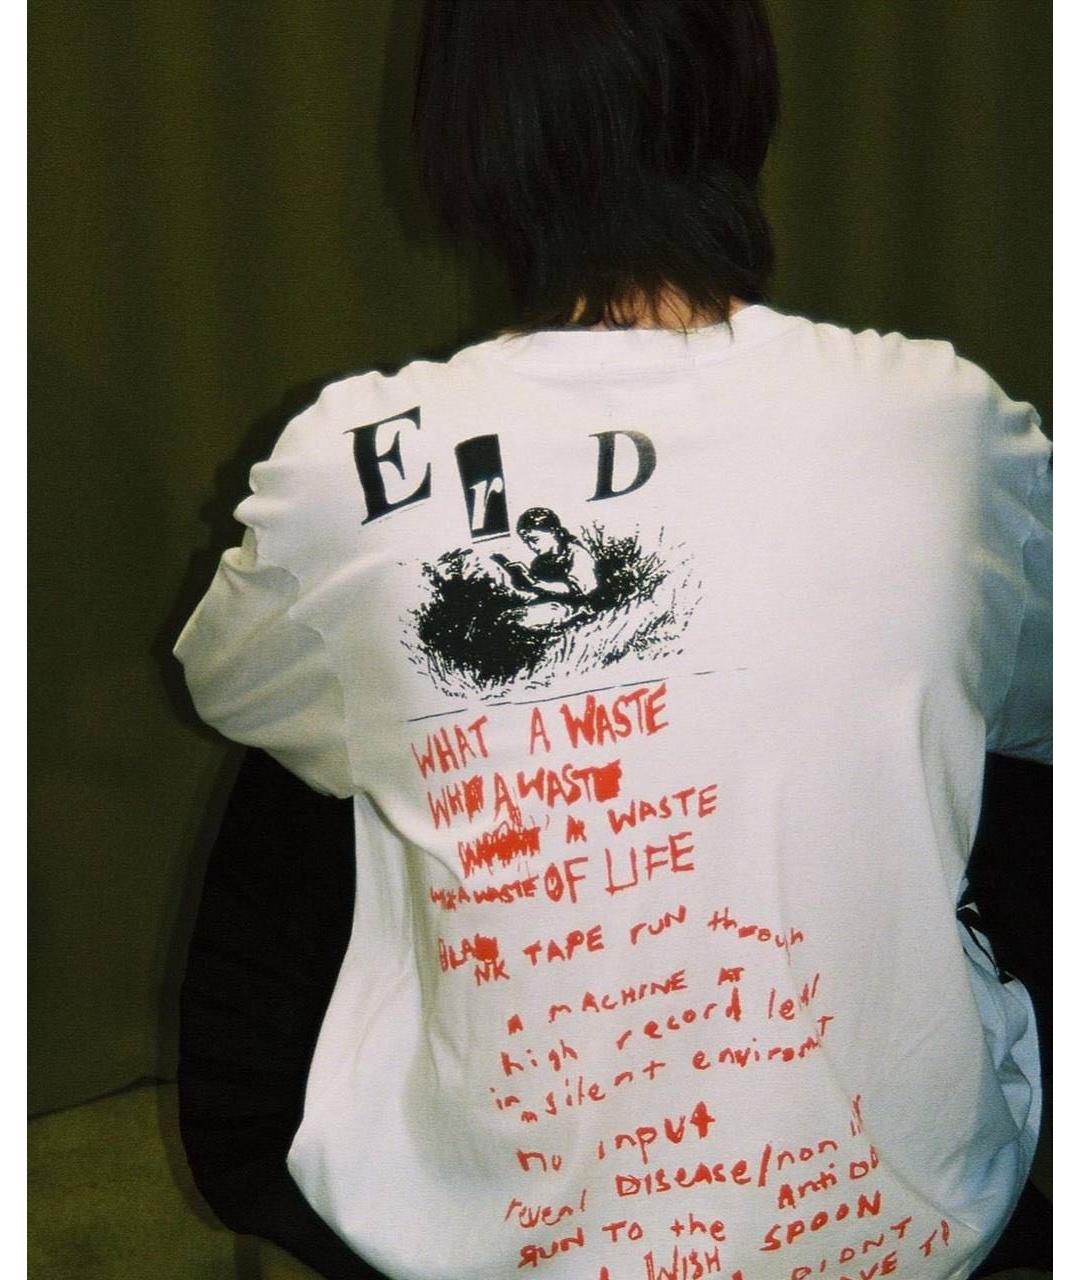 E r D
WHAT A WASTE
WHA A WASTE
A WASTE
A WASTE OF LIFE
BLA
NK TAPE RUN through
A MACHINE AT
high record level
in a silent enviromt
no input
revenl DISEASE/non
RUN TO the Anti
I WISH SPOON
DIDNT